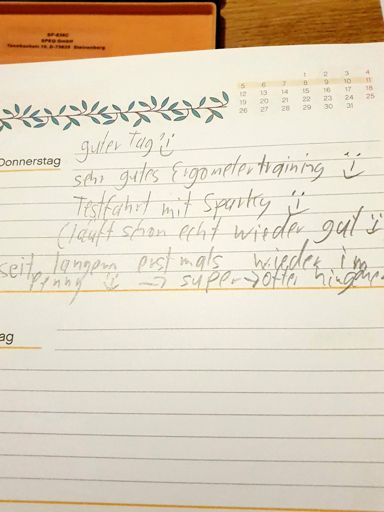 SP-830C
SPEQ GmbH
Tannhackstr.10, D-79825 Steinenberg
1 2 3 4
5 6 7 8 9 10 11
12 13 14 15 16 17 18
19 20 21 22 23 24 25
26 27 28 29 30 31
Donnerstag
guter Tag
sehr gutes Ergometertraining
Testfahrt mit Sparky
(läuft schon echt wieder gut
seit langem erstmals wieder im
Penny → super → öfter hingehe
ag